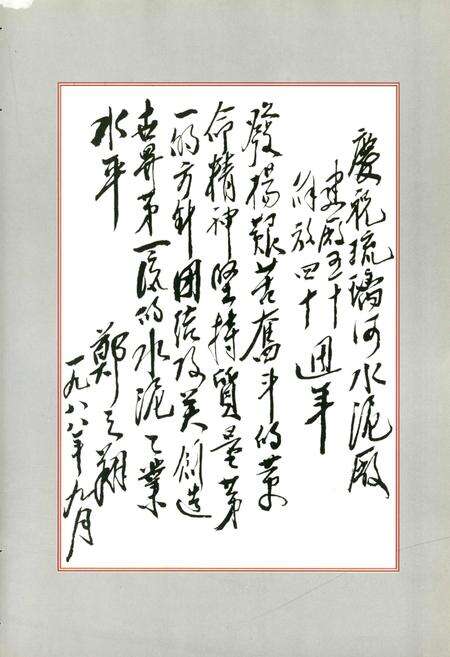 慶祝琉璃河水泥廠
建廠五十
解放四十
週年
發揚艱苦奮斗的革
命精神堅持質量第
一的方針團结攻关創造
世界第一流的水泥工業
水平
鄭之翔
一九八八年九月